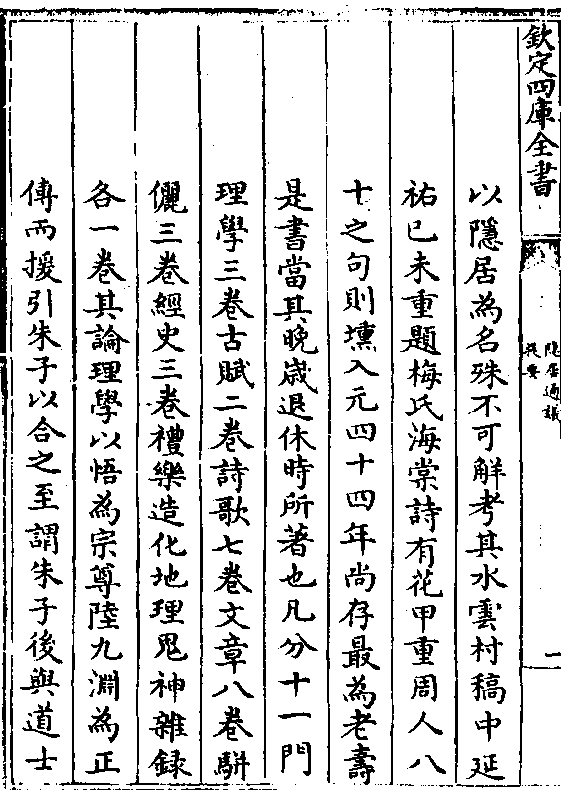 欽定四庫全書
隱居通議
提要
一
以隱居為名殊不可解考其水雲村稿中延
祐已未重題梅氏海棠詩有花甲重周人八
十之句則壎入元四十四年尚存最為老壽
是書當其晚歲退休時所著也凡分十一門
理學三卷古賦二卷詩歌七卷文章八卷駢
儷三卷經史三卷禮樂造化地理鬼神雜録
各一卷其論理學以悟為宗尊陸九淵為正
傳而援引朱子以合之至謂朱子後與道士